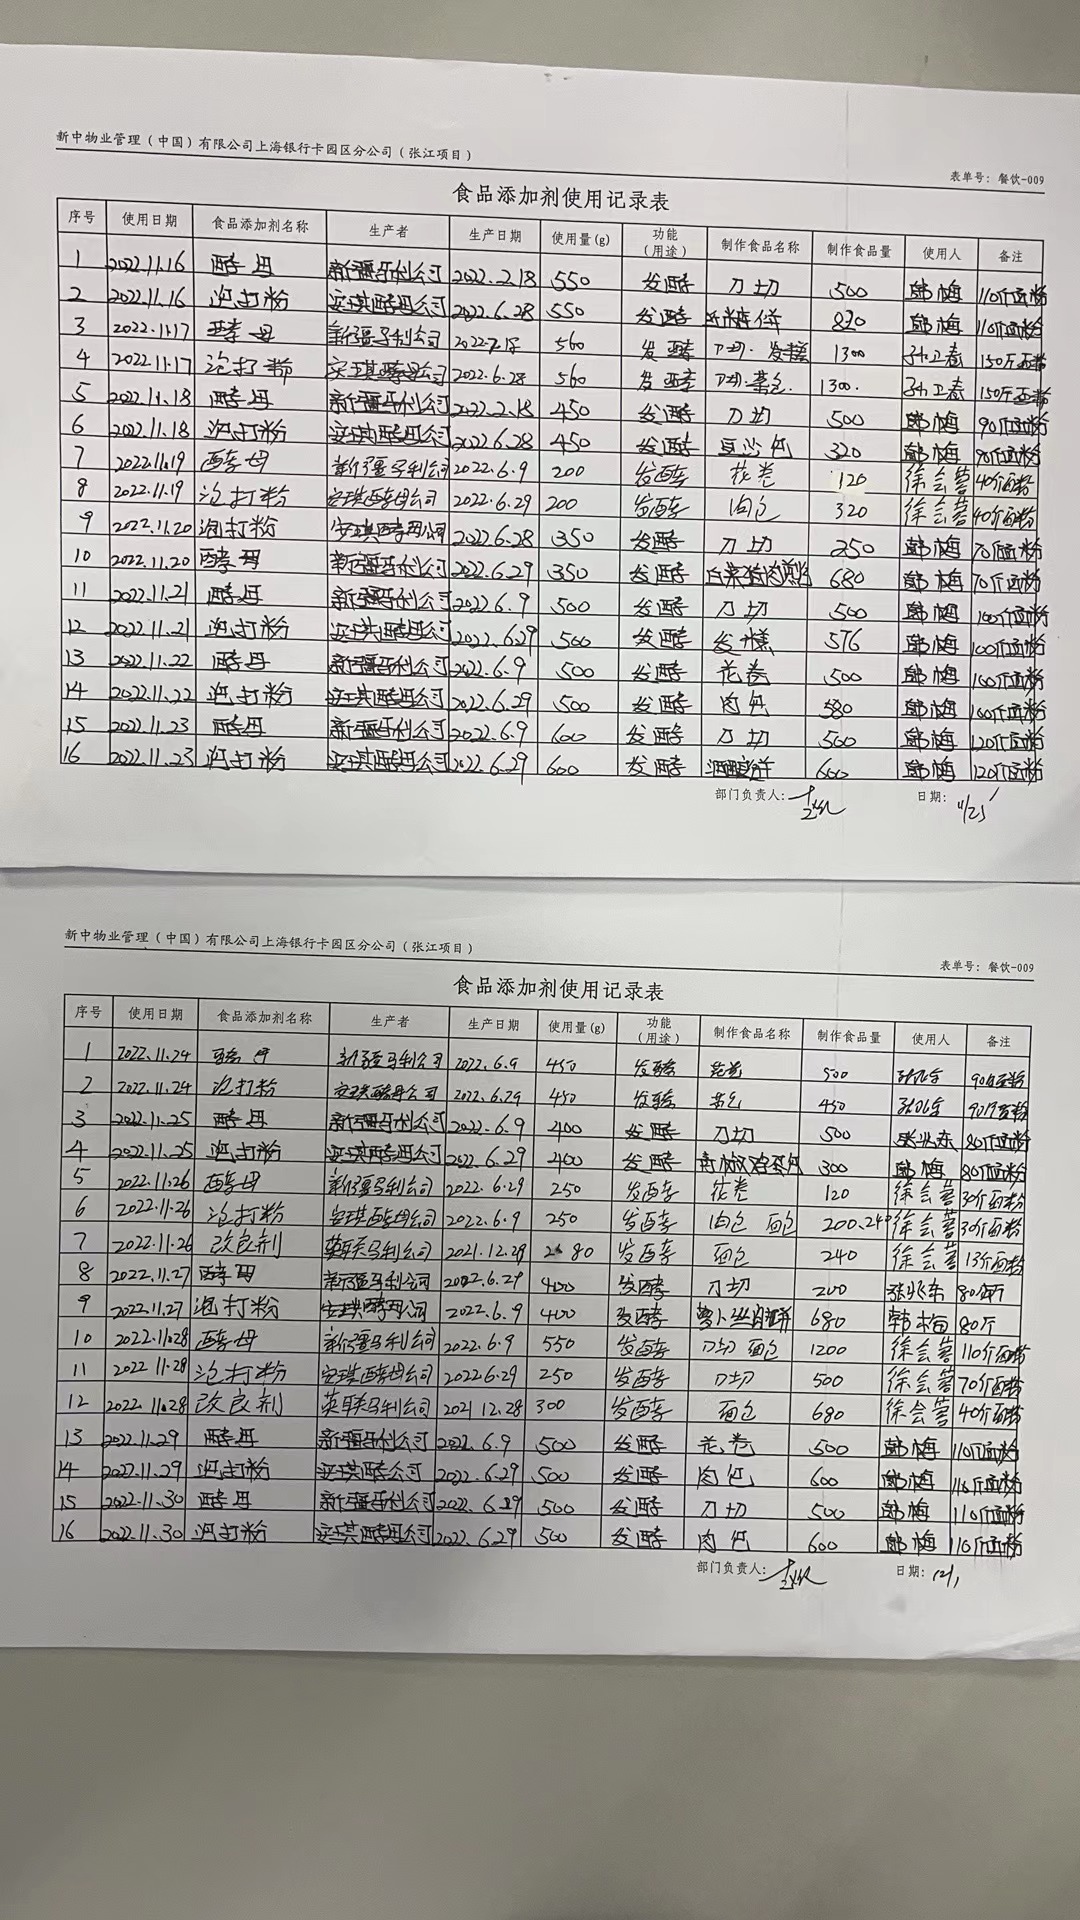 新中物业管理（中国）有限公司上海银行卡园区分公司（张江项目）
表单号：餐饮-009
食品添加剂使用记录表
序号 使用日期 食品添加剂名称 生产者 生产日期 使用量(g) 功能（用途） 制作食品名称 制作食品量 使用人 备注
1 2022.11.16 酵母 新疆马利公司 2022.2.18 550 发酵 刀切 500 韩梅 110斤面粉
2 2022.11.16 泡打粉 安琪酵母公司 2022.6.28 550 发酵 820 韩梅 110斤面粉
3 2022.11.17 酵母 新疆马利公司 2022.2.18 560 发酵 刀切.发糕 1300 孙卫春 150斤面粉
4 2022.11.17 泡打粉 安琪酵母公司 2022.6.28 560 发酵 刀切.菜包. 1300. 孙卫春 150斤面粉
5 2022.11.18 酵母 新疆马利公司 2022.2.18 450 发酵 刀切 500 韩梅 90斤面粉
6 2022.11.18 泡打粉 安琪酵母公司 2022.6.28 450 发酵 豆沙包 320 韩梅 90斤面粉
7 2022.11.19 酵母 新疆马利公司 2022.6.9 200 发酵 花卷 120 徐会蓉 40斤面粉
8 2022.11.19 泡打粉 安琪酵母公司 2022.6.29 200 发酵 肉包 320 徐会蓉 40斤面粉
9 2022.11.20 泡打粉 安琪酵母公司 2022.6.28 350 发酵 刀切 250 韩梅 70斤面粉
10 2022.11.20 酵母 新疆马利公司 2022.6.29 350 发酵 680 韩梅 70斤面粉
11 2022.11.21 酵母 新疆马利公司 2022.6.9 500 发酵 刀切 500 韩梅 100斤面粉
12 2022.11.21 泡打粉 安琪酵母公司 2022.6.29 500 发酵 发糕 576 韩梅 100斤面粉
13 2022.11.22 酵母 新疆马利公司 2022.6.9 500 发酵 花卷 500 韩梅 100斤面粉
14 2022.11.22 泡打粉 安琪酵母公司 2022.6.29 500 发酵 肉包 580 韩梅 100斤面粉
15 2022.11.23 酵母 新疆马利公司 2022.6.9 600 发酵 刀切 500 韩梅 120斤面粉
16 2022.11.23 泡打粉 安琪酵母公司 2022.6.29 600 发酵 600 韩梅 120斤面粉
部门负责人： 日期：
新中物业管理（中国）有限公司上海银行卡园区分公司（张江项目）
表单号：餐饮-009
食品添加剂使用记录表
序号 使用日期 食品添加剂名称 生产者 生产日期 使用量(g) 功能（用途） 制作食品名称 制作食品量 使用人 备注
1 2022.11.24 酵母 新疆马利公司 2022.6.9 450 发酵 花卷 500 90斤面粉
2 2022.11.24 泡打粉 安琪酵母公司 2022.6.29 450 发酵 菜包 450 90斤面粉
3 2022.11.25 酵母 新疆马利公司 2022.6.9 400 发酵 刀切 500 张兆东 80斤面粉
4 2022.11.25 泡打粉 安琪酵母公司 2022.6.29 400 发酵 300 韩梅 80斤面粉
5 2022.11.26 酵母 新疆马利公司 2022.6.29 250 发酵 花卷 120 徐会蓉 30斤面粉
6 2022.11.26 泡打粉 安琪酵母公司 2022.6.9 250 发酵 肉包 面包 200.240 徐会蓉 30斤面粉
7 2022.11.26 改良剂 英联马利公司 2021.12.28 80 发酵 面包 240 徐会蓉 13斤面粉
8 2022.11.27 酵母 新疆马利公司 2022.6.29 400 发酵 刀切 200 张兆东 80斤
9 2022.11.27 泡打粉 安琪酵母公司 2022.6.9 400 发酵 萝卜丝肉饼 680 韩梅 80斤
10 2022.11.28 酵母 新疆马利公司 2022.6.9 550 发酵 刀切 面包 1200 徐会蓉 110斤面粉
11 2022.11.28 泡打粉 安琪酵母公司 2022.6.29 250 发酵 刀切 500 徐会蓉 70斤面粉
12 2022.11.28 改良剂 英联马利公司 2021.12.28 300 发酵 面包 680 徐会蓉 40斤面粉
13 2022.11.29 酵母 新疆马利公司 2022.6.9 500 发酵 花卷 500 韩梅 110斤面粉
14 2022.11.29 泡打粉 安琪酵公司 2022.6.29 500 发酵 肉包 600 韩梅 110斤面粉
15 2022.11.30 酵母 新疆马利公司 2022.6.29 500 发酵 刀切 500 韩梅 110斤面粉
16 2022.11.30 泡打粉 安琪酵母公司 2022.6.29 500 发酵 肉包 600 韩梅 110斤面粉
部门负责人： 日期：12/1